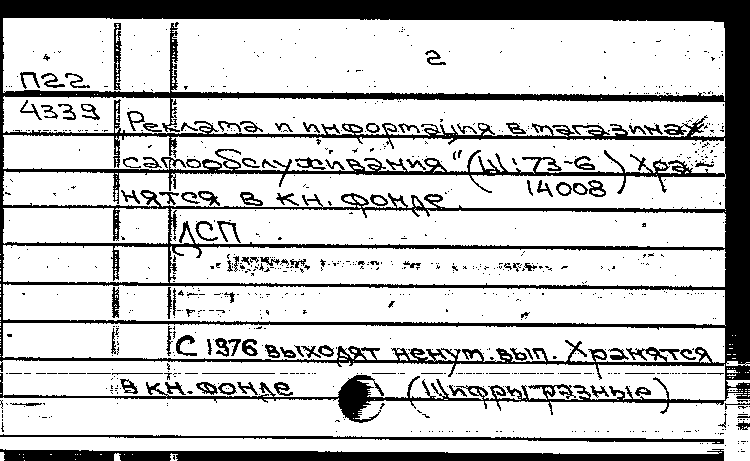 2
П22
4339
„Реклама и информация в магазинах
самообслуживания" (Ш: 73-6 / 14008) Хра-
нятся в кн. фонде.
ДСП
С 1976 выходят ненум. вып. Хранятся
в кн. фонде (Шифры разные)